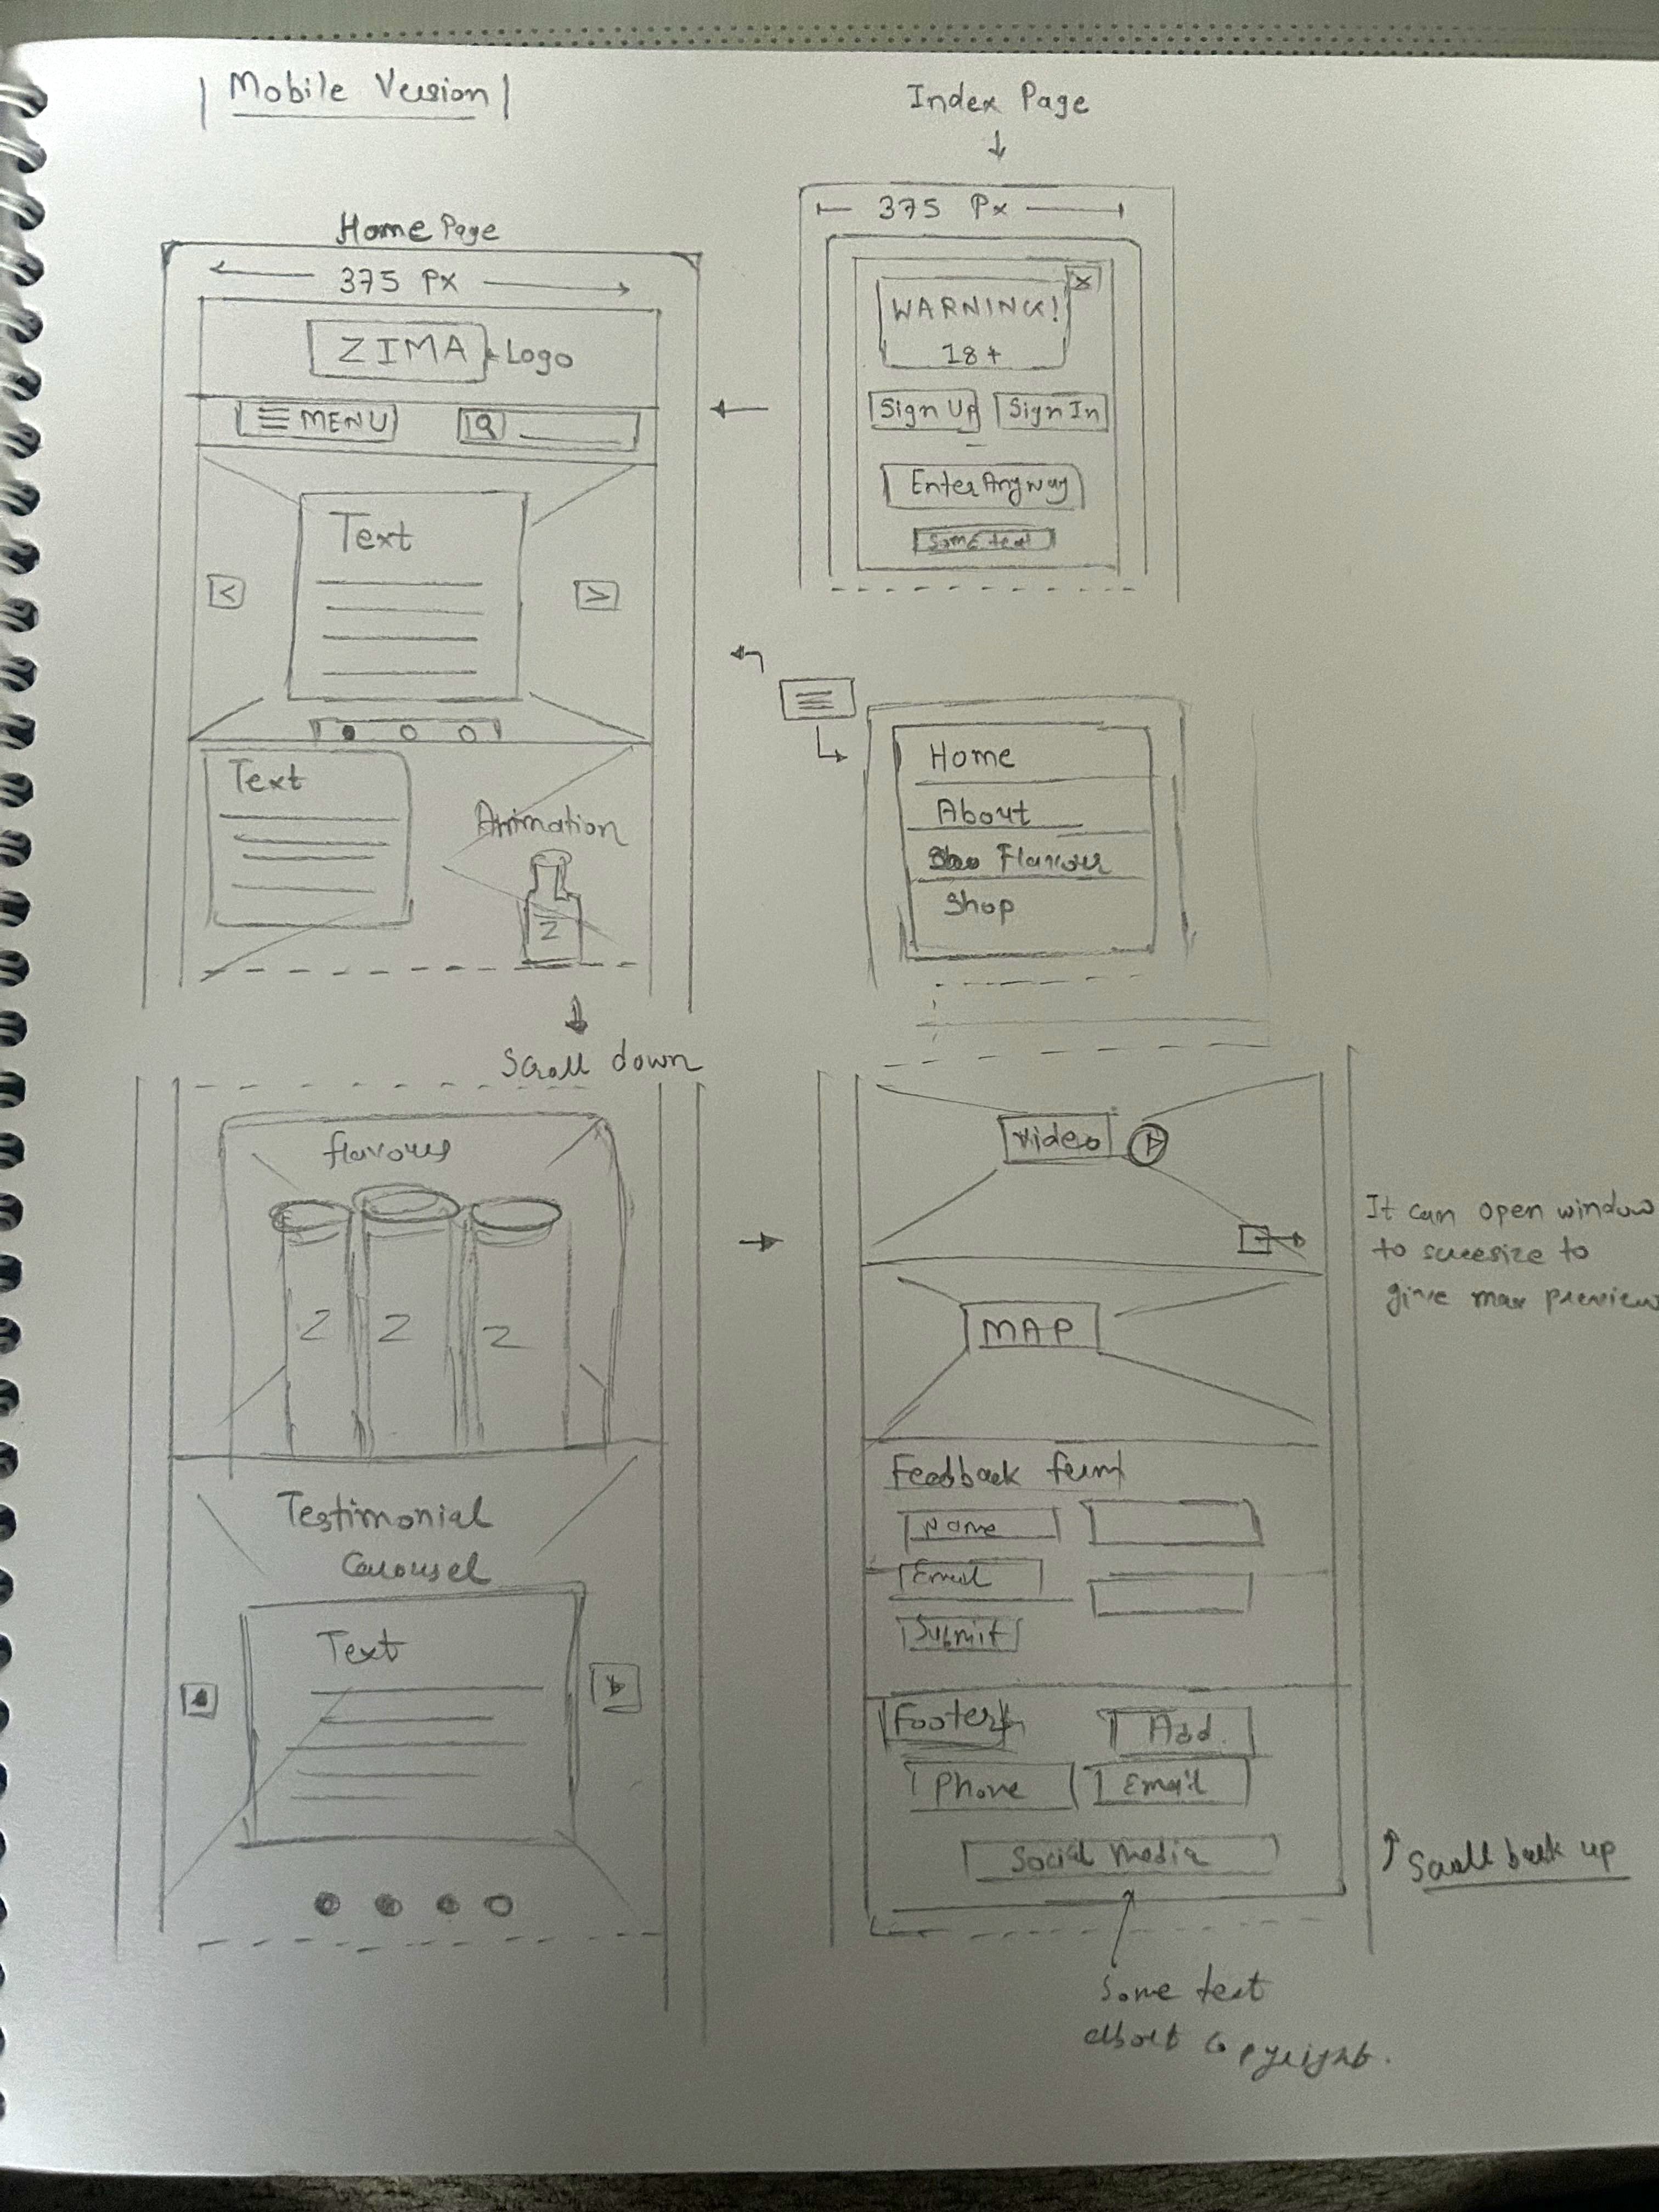 Mobile Version
Index Page
375 Px
WARNING!
18+
X
Sign Up
Sign In
Enter Anyway
Some text
Home Page
375 Px
ZIMA
Logo
MENU
Text
<
>
Text
Animation
Z
Scroll down
Home
About
Flavour
Shop
flavours
Z
Z
Z
Testimonial
Carousel
Text
Video
It can open window
to
give max preview
MAP
Feedback form
Name
Email
Submit
Footer
Add.
Phone
Email
Social Media
Scroll back up
Some text
about copyright.